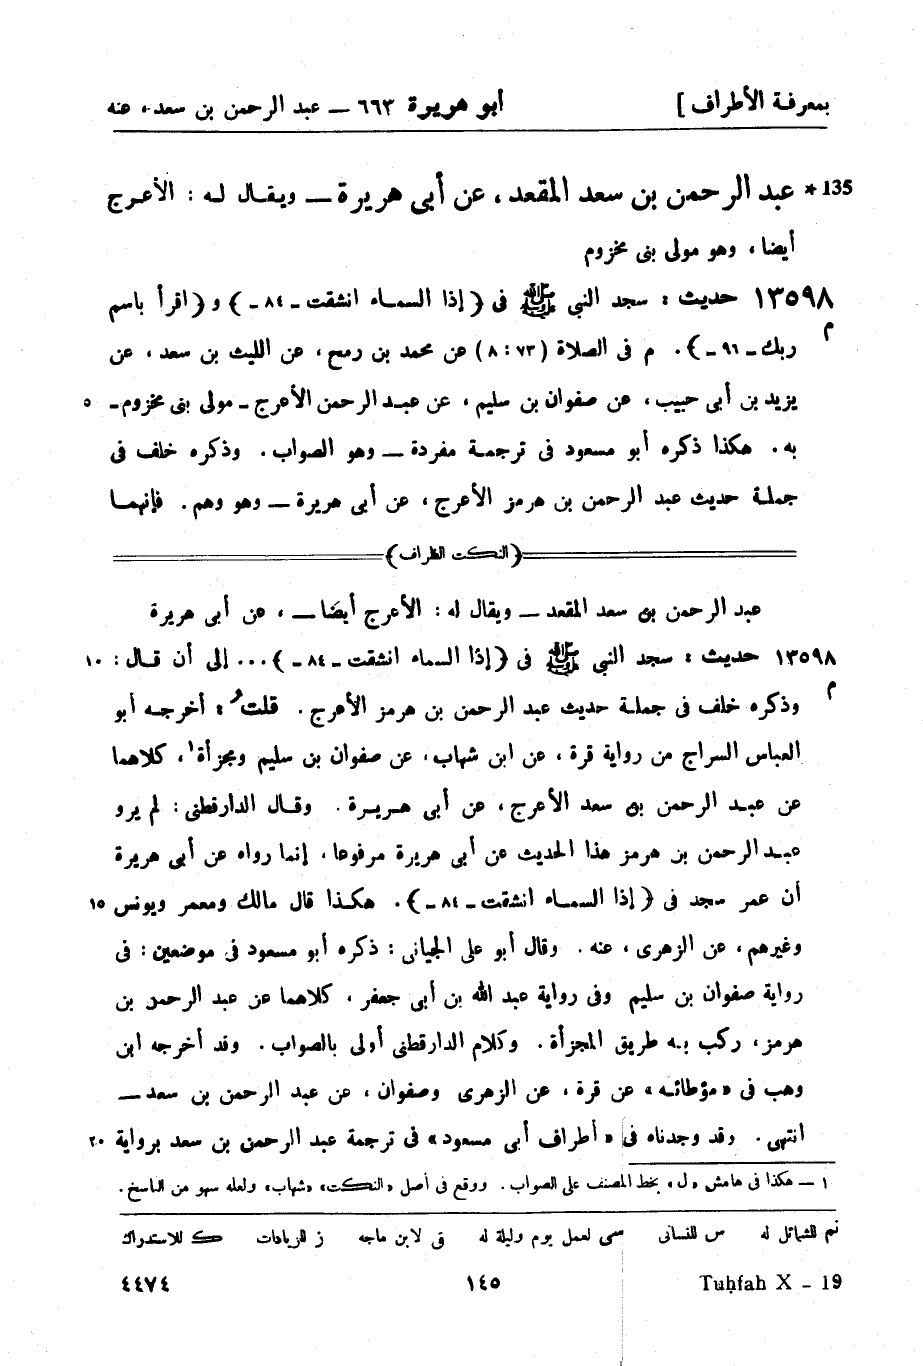 بمعرفة الأطراف ] أبو هريرة ٦٦٣ ــ عبد الرحمن بن سعد، عنه
135 * عبد الرحمن بن سعد المقعد ، عن أبى هريرة ــ ويقال له : الأعرج
أيضا، وهو مولى بنى مخزوم
١٣٥٩٨ حديث : سجد النبي ﷺ فى ﴿ إذا السماء انشقت ـ ٨٤ ـ ﴾ و ﴿ اقرأ باسم
م ربك ـ ٩٦ ـ ﴾ . م فى الصلاة ( ٧٣ : ٨ ) عن محمد بن رمح ، عن الليث بن سعد ، عن
يزيد بن أبى حبيب ، عن صفوان بن سليم ، عن عبد الرحمن الأعرج ـ مولى بنى مخزوم ـ ٥
به . هكذا ذكره أبو مسعود فى ترجمة مفردة ــ وهو الصواب . وذكره خلف فى
جملة حديث عبد الرحمن بن هرمز الأعرج ، عن أبى هريرة ــ وهو وهم . فإنهما
﴿ النكت الظراف ﴾
عبد الرحمن بن سعد المقعد ــ ويقال له : الأعرج أيضا ــ ، عن أبى هريرة
١٣٥٩٨ حديث : سجد النبي ﷺ فى ﴿ إذا السماء انشقت ـ ٨٤ ـ ﴾ ... إلى أن قال : ١٠
م وذكره خلف فى جملة حديث عبد الرحمن بن هرمز الأعرج . قلت : أخرجه أبو
العباس السراج من رواية قرة ، عن ابن شهاب ، عن صفوان بن سليم ومجزأة١ ، كلاهما
عن عبد الرحمن بن سعد الأعرج ، عن أبى هريرة . وقال الدارقطنى : لم يرو
عبد الرحمن بن هرمز هذا الحديث عن أبى هريرة مرفوعا ، إنما رواه عن أبى هريرة
أن عمر سجد فى ﴿ إذا السماء انشقت ـ ٨٤ ـ ﴾ . هكذا قال مالك ومعمر ويونس ١٥
وغيرهم ، عن الزهرى ، عنه . وقال أبو على الجيانى : ذكره أبو مسعود فى موضعين : فى
رواية صفوان بن سليم وفى رواية عبد الله بن أبى جعفر ، كلاهما عن عبد الرحمن بن
هرمز ، ركب به طريق المجزأة . وكلام الدارقطنى أولى بالصواب . وقد أخرجه ابن
وهب فى « مؤطائه » عن قرة ، عن الزهرى وصفوان ، عن عبد الرحمن بن سعد ــ
انتهى . وقد وجدناه فى « أطراف أبى مسعود » فى ترجمة عبد الرحمن بن سعد برواية ٢٠
١ ــ هكذا فى هامش « ل » بخط المصنف على الصواب . ووقع فى أصل « النكت » « شهاب » ولعله سهو من الناسخ .
تم للشمائل له س للنسائى سى لعمل يوم وليلة له ق لابن ماجه ز للزيادات ك للاستدراك
Tuḥfah X – 19 ١٤٥ ٤٤٧٤